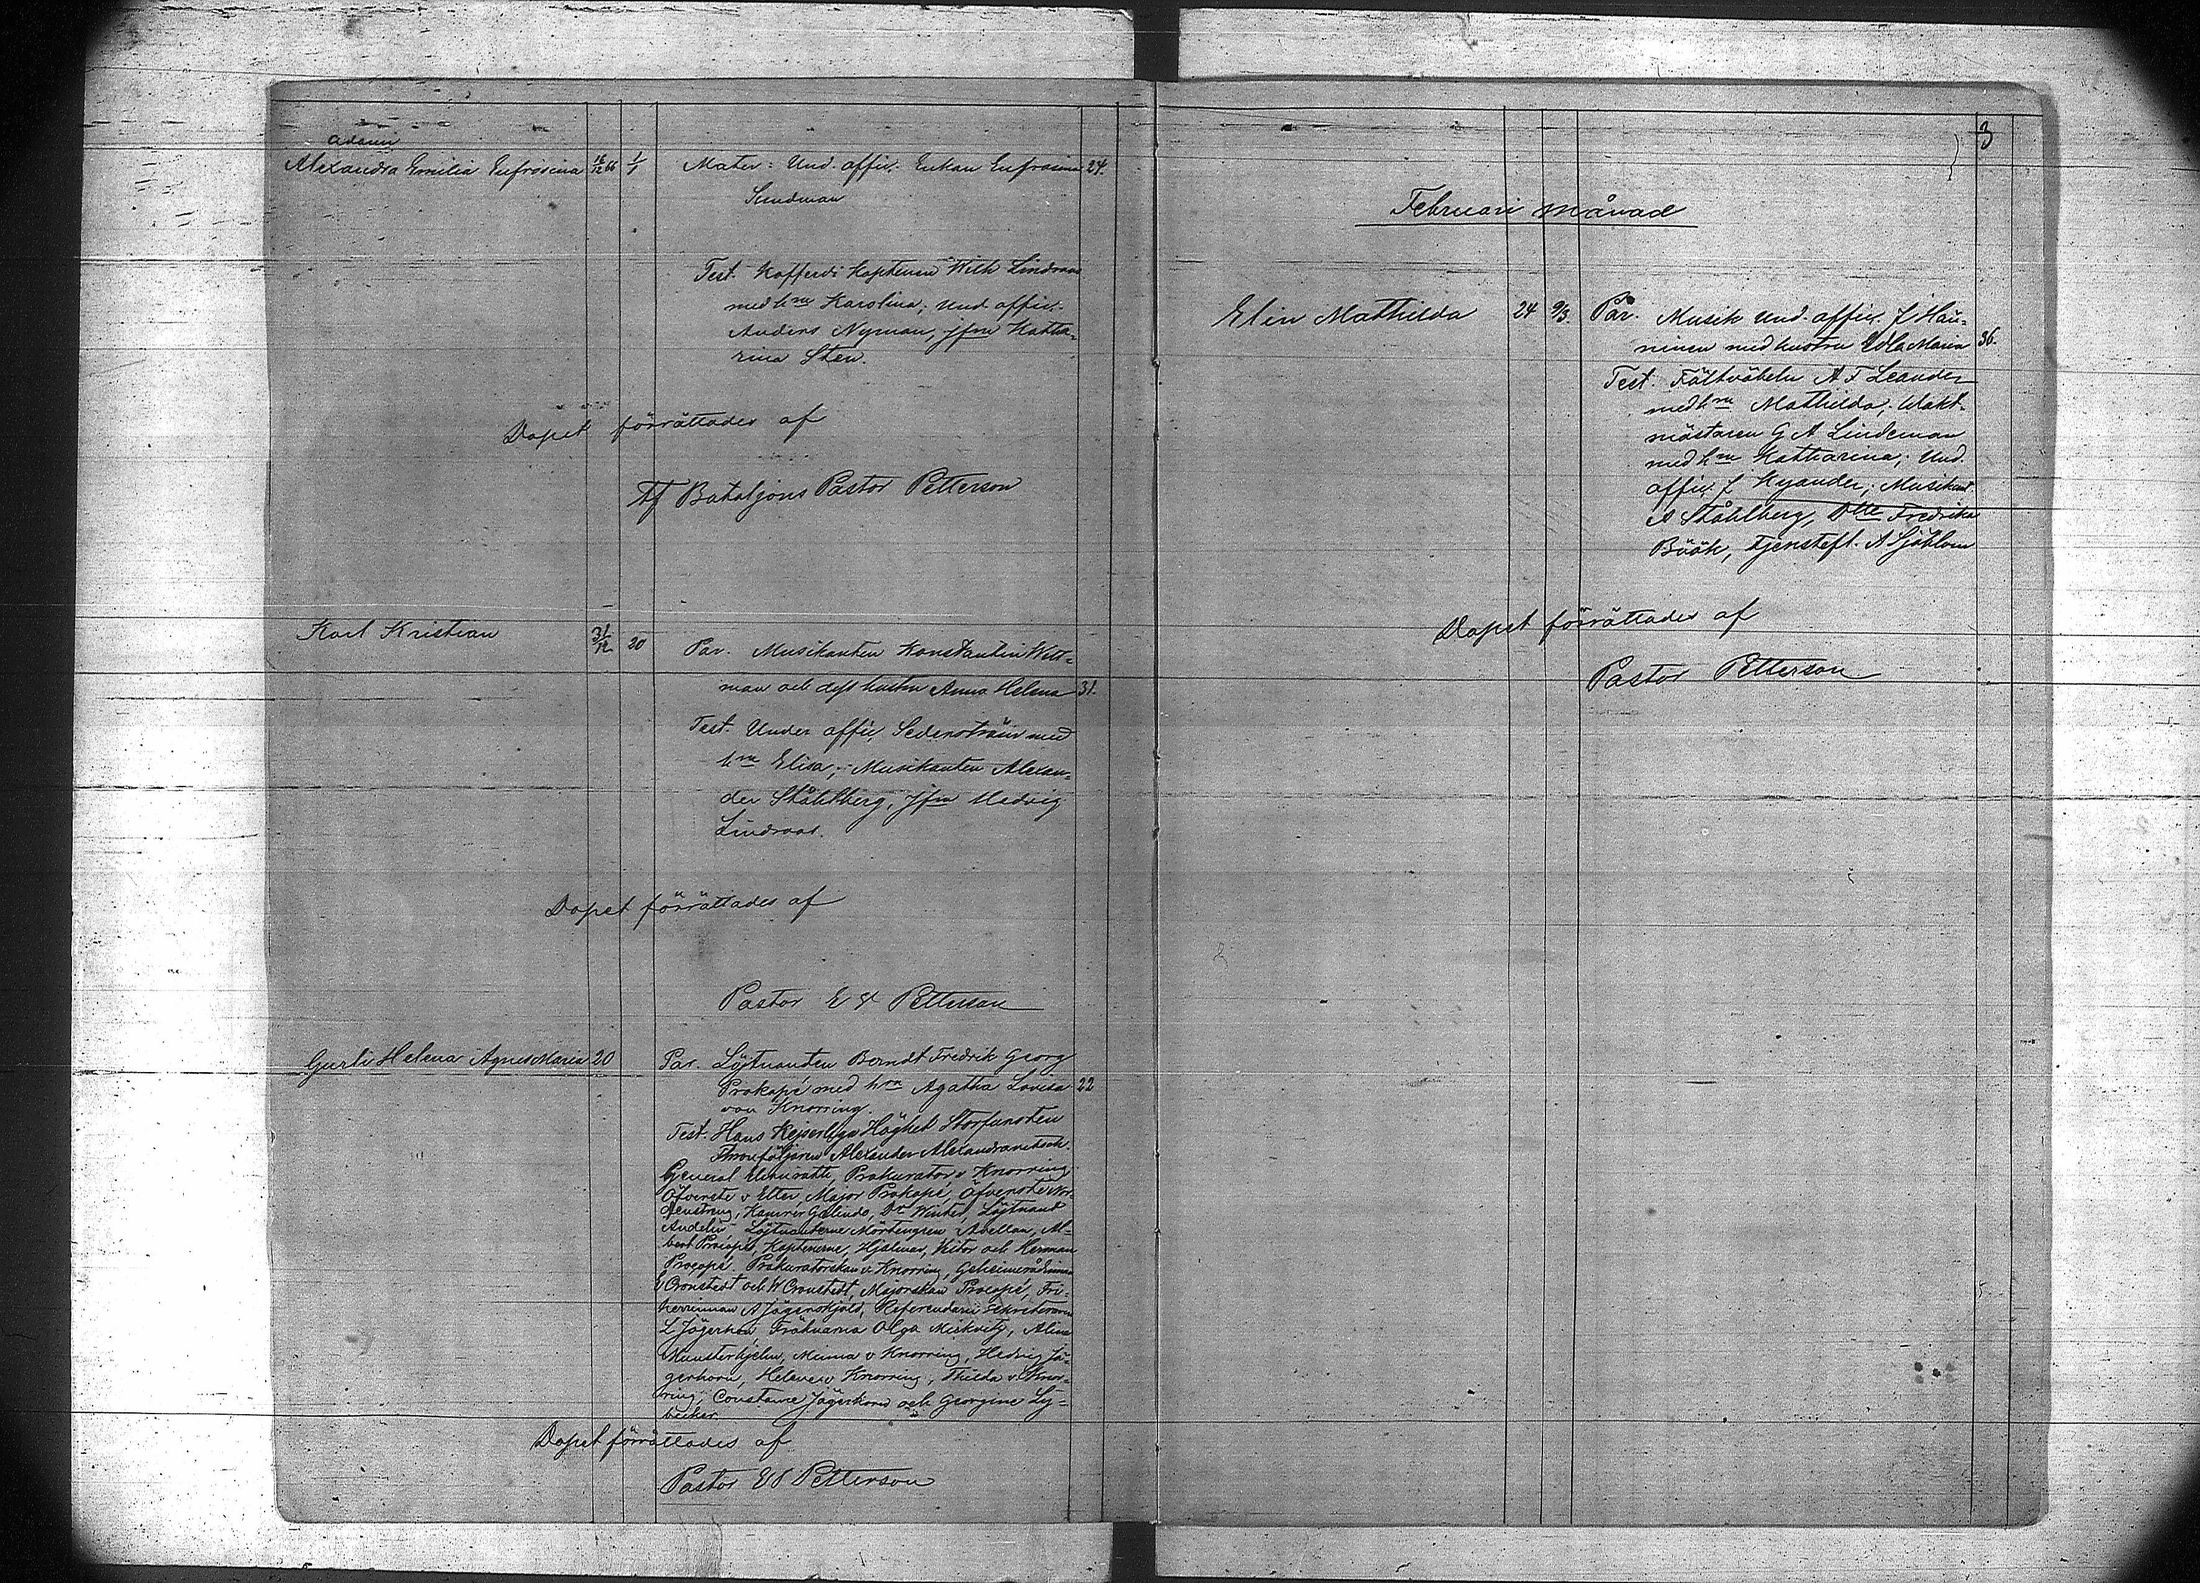 Adami
Alexandra Emilia Eufrosina 16/12 66 1/1 Mater: Und. offic. Enkan Eufrosina 24.
Sundman
Test. Kofferdi Kaptenen Wilh Lindroos
med h:m Karolina; Und. offic.
Anders Nyman, Jfrn Katha-
rina Sten.
Dopet förrättades af
Af Bataljons Pastor Petterson
Karl Kristian 31/12 20 Par. Musikanten Konstantin Witt-
man och dess hustru Anna Helena 31.
Test. Under offic. Sedenström med
h:m Elisa; Musikanten Alexan-
der Ståhlberg, Jfrn Hedvig
Lindroos.
Dopet förrättades af
Pastor E Petterson
Gurli Helena Agnes Maria 20 Par. Löjtnanten Berndt Fredrik Georg
Prokopé med h:m Agatha Lovisa 22
von Knorring.
Test. Hans Kejserliga Höghet Storfursten
Thronföljaren Alexander Alexandrovitsch.
General Prokurator v Knorring
Öfverste v Etter, Major Prokopé, Öfverste Nor-
denstreng, Kamrer Galindo, Dr Winter, Löjtnant
Andelin, Löjtnanterne Mörtengren Avellan, Al-
bert Procopé, Kaptenerne, Hjalmar, Victor och Herman
Procopé. Prokuratorskan v. Knorring, Geheimerådinnan
Cronstedt och W Cronstedt, Majorskan Procopé, Fri-
herrinnan A Jägerskjöld, Referendarie Sekreteraren
L Jägerhorn, Fröknarna Olga Miskvitz, Alina
Munsterhjelm, Minna v Knorring, Hedvig Jä-
gerhorn, Helene v Knorring, Thilda v Knor-
ring, Constance Jägerhorn och Georgine Ly-
becker
Dopet förrättades af
Pastor E Petterson
3
Februari månad
Elin Mathilda 24 9/3. Par. Musik Und. offic. J Hau-
ninen med hustru Edla Maria 36.
Test. Fältväbeln A F Leander
med h:m Mathilda; Wakt-
mästaren G A Lindeman
med h:m Katharina; Und.
offic. J Kyander; Musikant
A Ståhlberg, D:lle Fredrika
Böök, tjensteft. A Sjöblom
Dopet förrättades af
Pastor Petterson